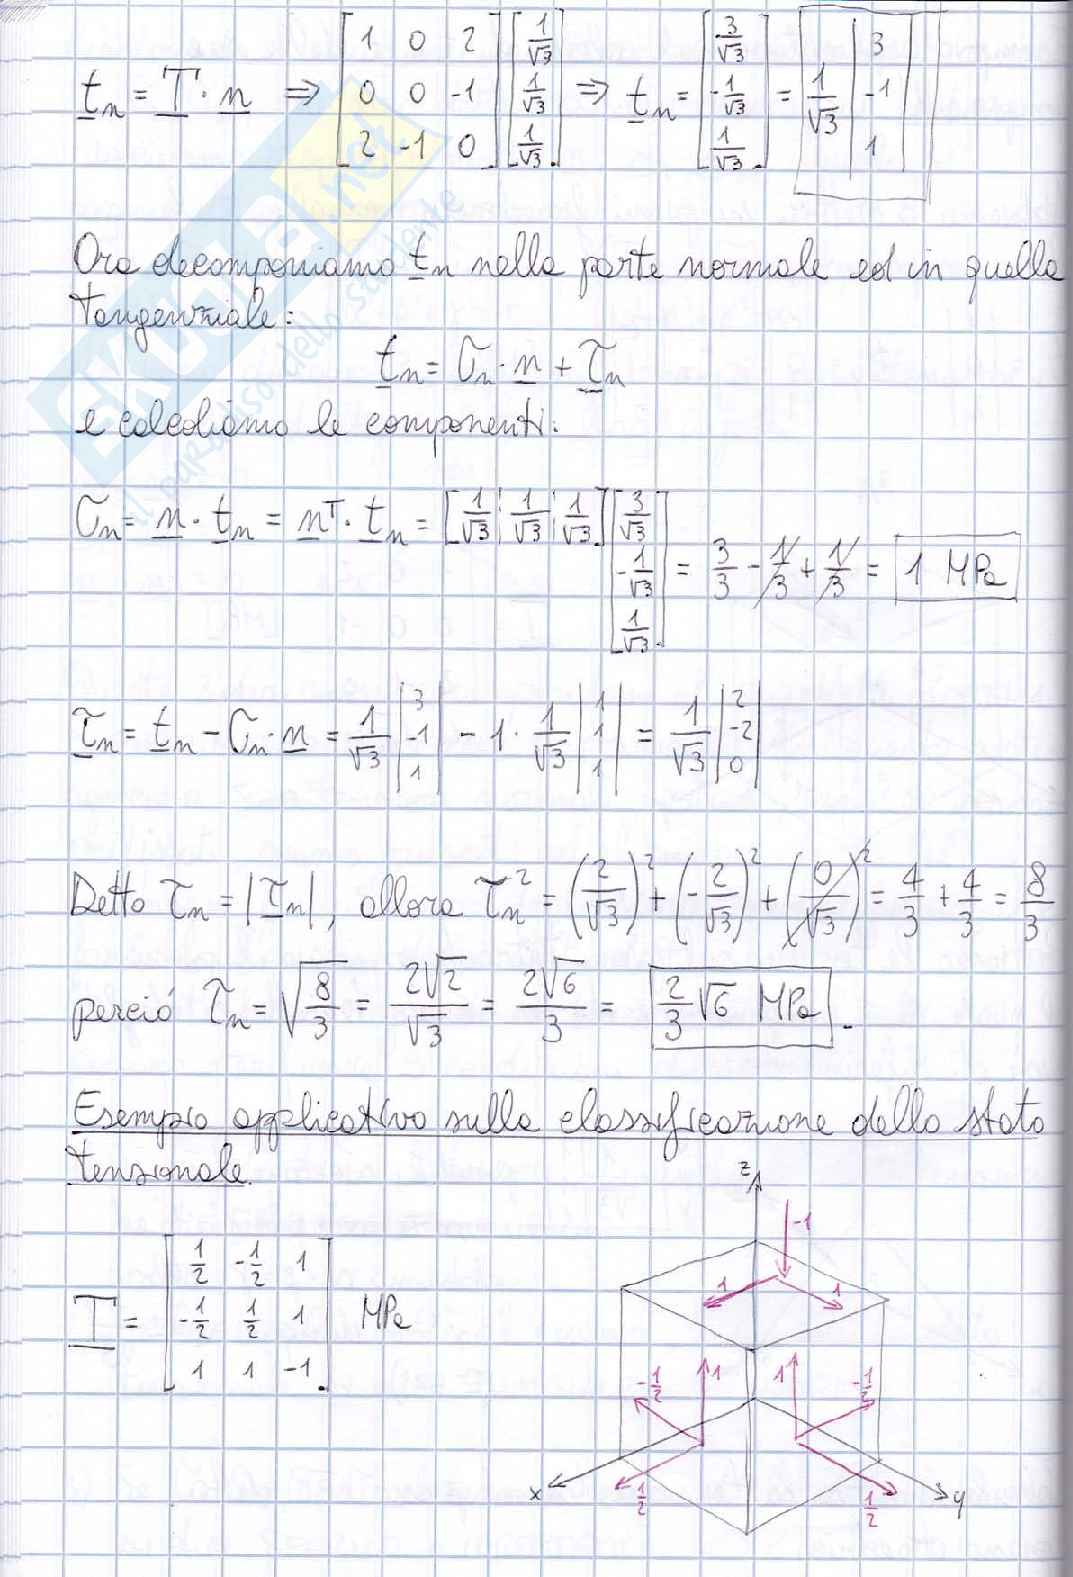 t_n = T · n ⇒ [1 0 2; 0 0 -1; 2 -1 0] [1/√3; 1/√3; 1/√3] ⇒ t_n = [3/√3; -1/√3; 1/√3] = 1/√3 |3; -1; 1|
Ora decomponiamo t_n nella parte normale ed in quella
tangenziale:
t_n = σ_n · n + τ_n
e calcoliamo le componenti:
σ_n = n · t_n = n^T · t_n = [1/√3 1/√3 1/√3] [3/√3; -1/√3; 1/√3] = 3/3 - 1/3 + 1/3 = 1 MPa
τ_n = t_n - σ_n · n = 1/√3 |3; -1; 1| - 1 · 1/√3 |1; 1; 1| = 1/√3 |2; -2; 0|
Detto τ_n = |τ_n|, allora τ_n² = (2/√3)² + (-2/√3)² + (0/√3)² = 4/3 + 4/3 = 8/3
perció τ_n = √(8/3) = 2√2/√3 = 2√6/3 = 2/3 √6 MPa .
Esempio applicativo sulla classificazione dello stato
tensionale.
T = [1/2 -1/2 1; -1/2 1/2 1; 1 1 -1] MPa
z
-1
1 1
-1/2 1 1 -1/2
x 1/2 1/2 y
SKUOLA.net
il paradiso dello studente